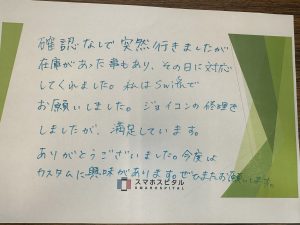 確認なしで突然行きましたが
在庫があった事もあり、その日に対応
してくれました。私はSwitchで
お願いしました。ジョイコンの修理を
しましたが、満足しています。
ありがとうございました。今度は
カスタムに興味があります。ぜひまたお願いします。
スマホスピタル
SMAHOSPITAL